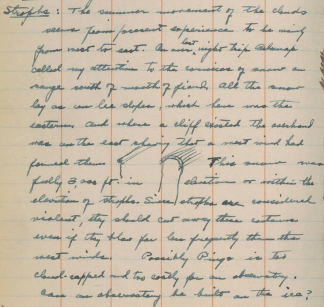 Strophs: The summer movement of the clouds
seems from present experience to be mainly
from west to east. An over night trip
called my attention to the cornices of snow on
range south of mouth of fiord. All the snow
lay on une lee slopes, which here was the
eastern. And where a cliff existed the overhand
was on the east showing that a west wind had
formed them This snow was
fully 3,000 ft. in elevation or within the
elevation of strophs. Since strophs are considered
violent, they should cut away these eastern
even if they blow far less frequently than the
west winds. Possibly Pingo is too
cloud-capped and too costly for an observatory.
Can an observatory be built on the ice?